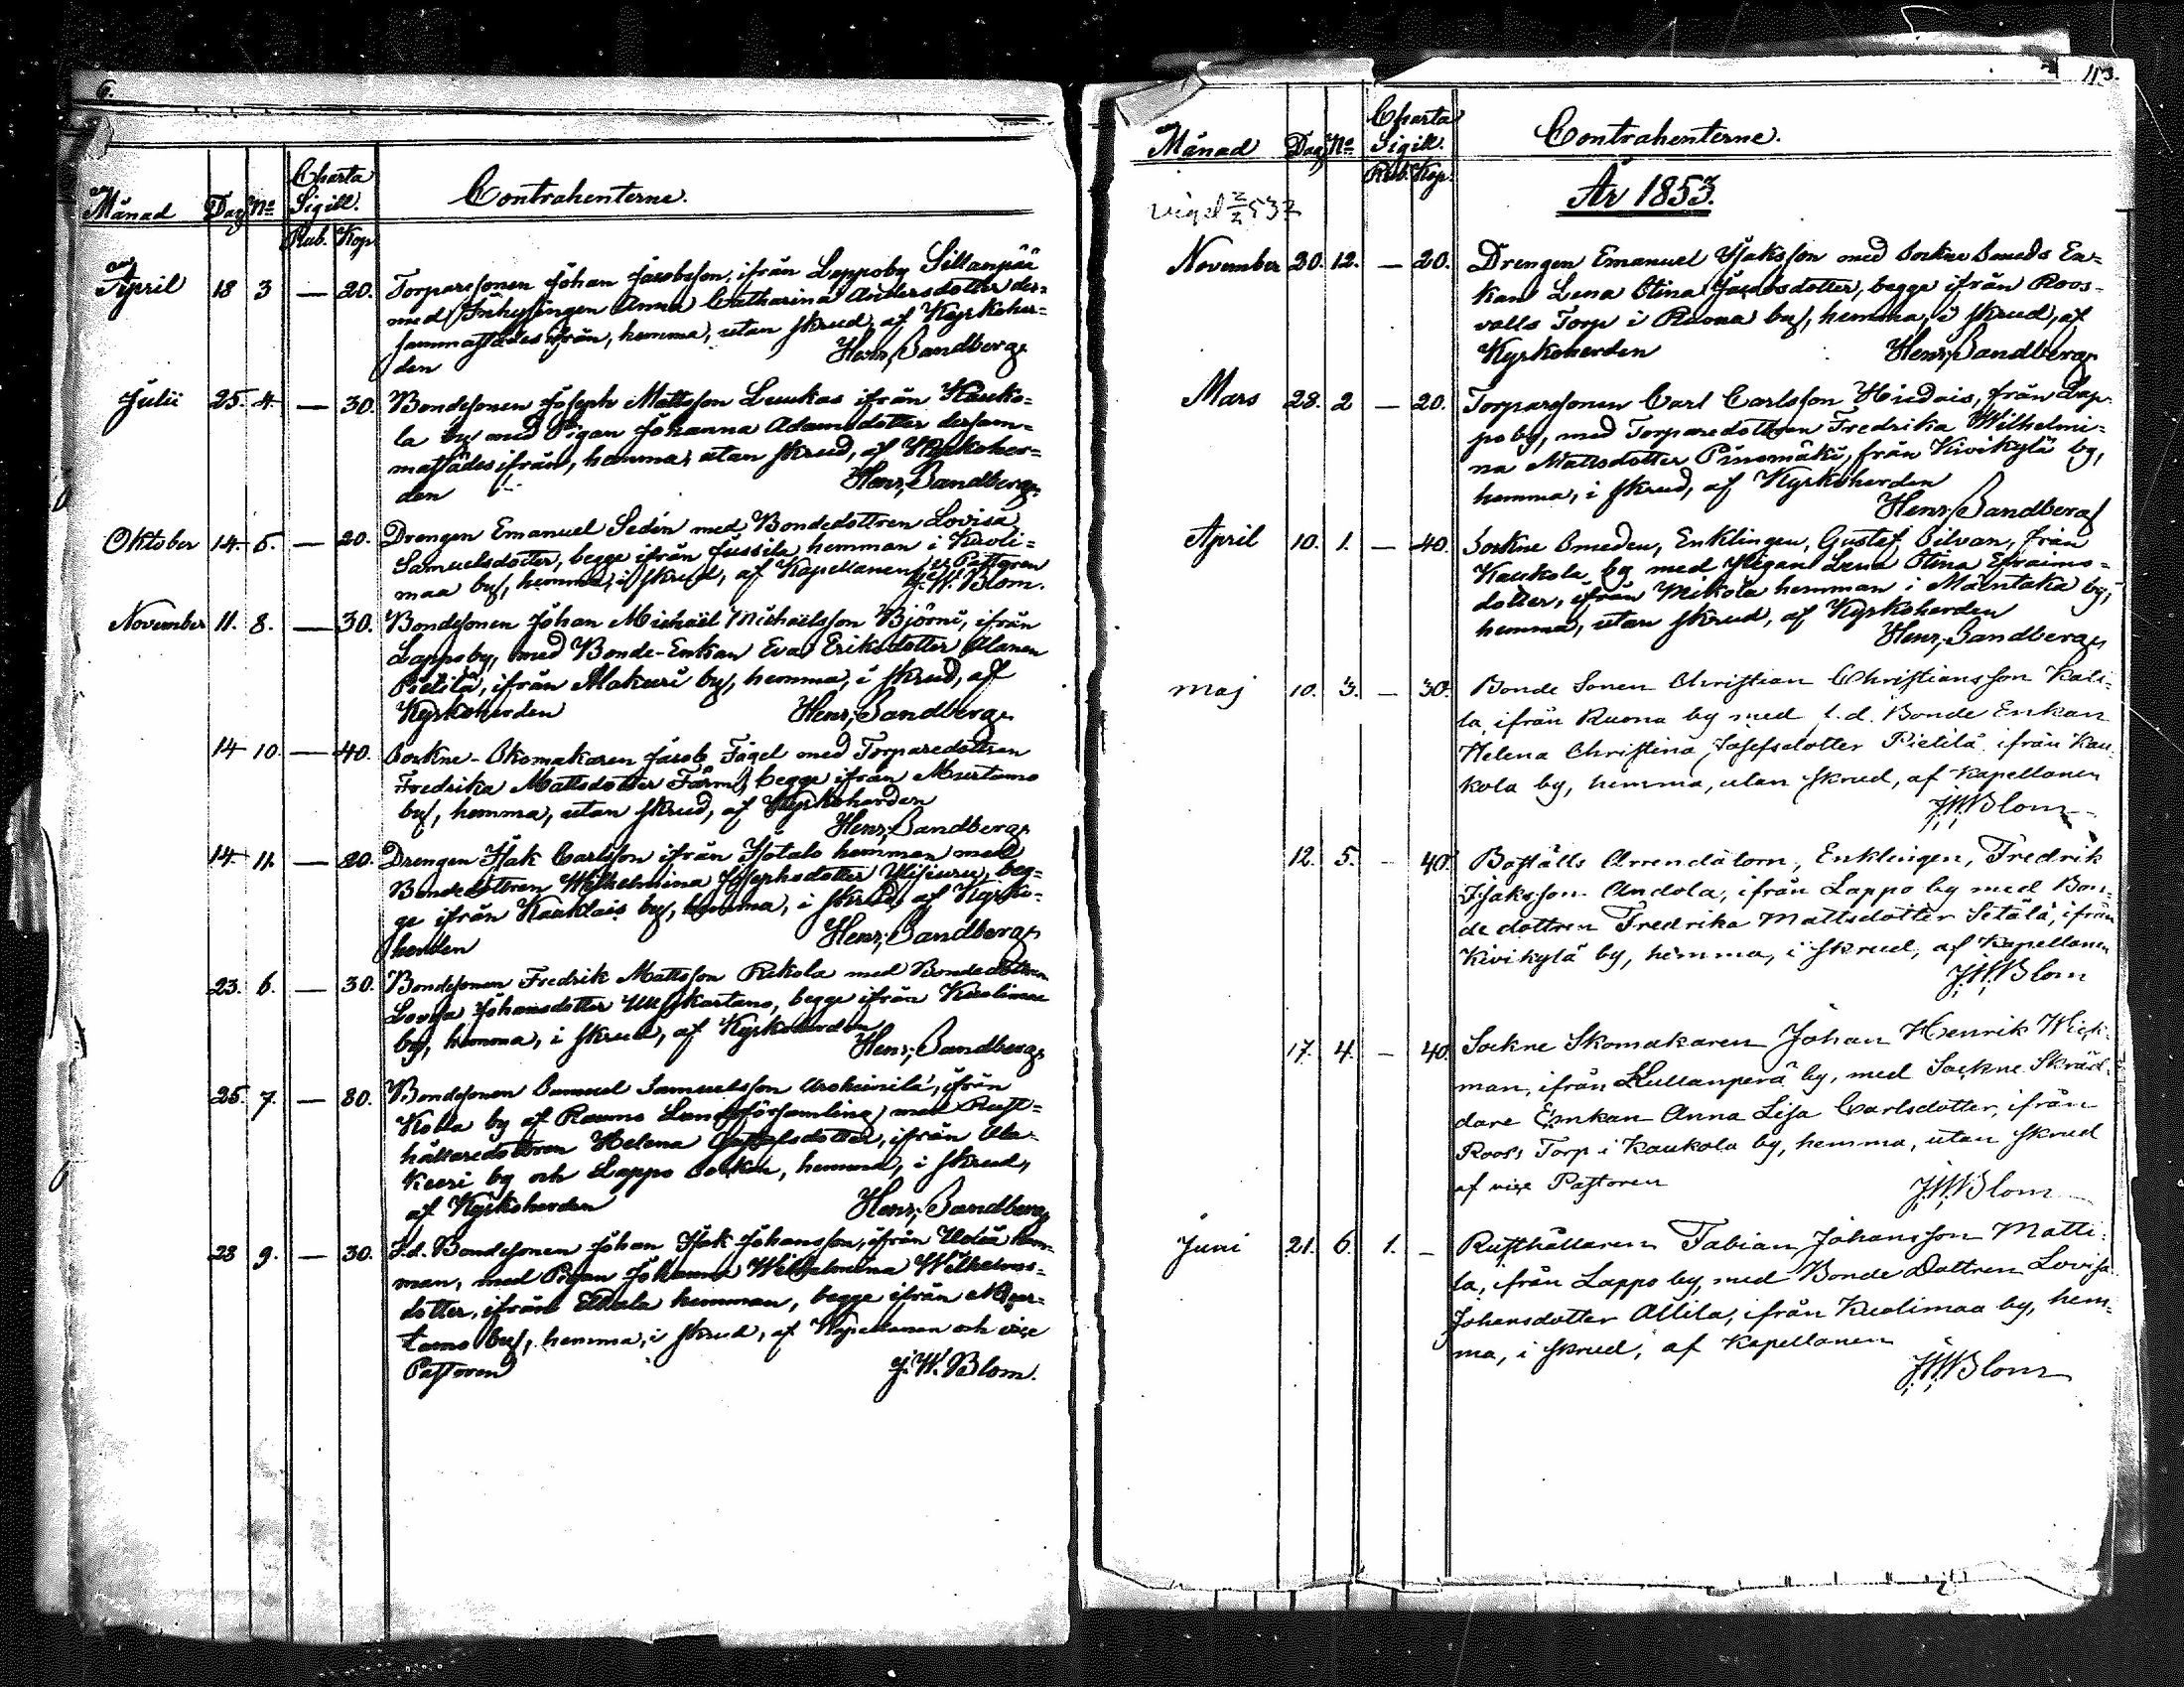 6.
Månad Dag No Charta Sigill. Contrahenterne.
Rub. Kop.
April 18 3 — 20. Torparesonen Johan Jacobsson, ifrån Lappoby Sillanpää
med Inhysingen Anna Catharina Andersdotter der-
sammastädes ifrån, hemma, utan skrud, af Kyrkoher-
den Henr. Sandberg
Julii 25. 4. — 30. Bondesonen Joseph Mattsson Luukas ifrån Kauko-
la by med Pigan Johanna Adamsdotter dersam-
mastädes ifrån, hemma, utan skrud, af Kyrkoher-
den Henr. Sandberg
Oktober 14. 5. — 20. Drengen Emanuel Sedén med Bondedottren Lovisa
Samuelsdotter, begge ifrån Jussila hemman i Kuoli-
maa by, hemma, i skrud, af Kapellanen, v. Pastoren
J. W. Blom.
November 11. 8. — 30. Bondesonen Johan Michaël Michaëlsson Björni, ifrån
Lappo by, med Bonde-Enkan Eva Eriksdotter Alanen
Pietilä, ifrån Alakuri by, hemma, i skrud, af
Kyrkoherden Henr. Sandberg
14 10. — 40. Sockne-Skomakaren Jacob Fågel med Torparedottren
Fredrika Mattsdotter Färm, begge ifrån Murtamo
by, hemma, utan skrud, af Kyrkoherden
Henr. Sandberg
14. 11. — 20. Drengen Isak Carlsson ifrån Isotalo hemman med
Bondedottren Wilhelmina Josephsdotter beg-
ge ifrån Kauklais by, hemma, i skrud, af Kyrko-
herden Henr. Sandberg
23. 6. — 30. Bondesonen Fredrik Mattsson Rekola med Bondedottren
Lovisa Johansdotter begge ifrån Kuolimaa
by, hemma, i skrud, af Kyrkoherden
Henr. Sandberg
25. 7. — 80. Bondesonen Samuel Samuelsson ifrån
by af Raumo Landsförsamling med Rust-
hållaredottren Helena Gustafsdotter, ifrån Ala-
kuri by och Lappo Socken, hemma, i skrud,
af Kyrkoherden Henr. Sandberg
28 9. — 30. F.d. Bondesonen Johan Isak Johansson, ifrån hem-
man, med Pigan Johanna Wilhelmina Wilhelms-
dotter, ifrån hemman, begge ifrån Mur-
tamo by, hemma, i skrud, af Kapellanen och vice
Pastoren J. W. Blom.
113.
Månad Dag No Charta Sigill. Contrahenterne.
Rub. Kop.
År 1853.
November 20. 12. — 20. Drengen Emanuel Isaksson med Sockne Smeds En-
kan Lena Stina Jacobsdotter, begge ifrån Roos-
valls Torp i Ruona by, hemma, i skrud, af
Kyrkoherden Henr. Sandberg
Mars 28. 2 — 20. Torparesonen Carl Carlsson Hiidois, från Lap-
po by, med Torparedottren Fredrika Wilhelmi-
na Mattsdotter Pinomäki, från Kivikylä by,
hemma, i skrud, af Kyrkoherden
Henr. Sandberg
April 10. 1. — 40. Sockne Smeden, Enklingen, Gustaf Silvan, från
Kaukola by med Pigan Lena Stina Efraims-
dotter, ifrån Mikola hemman i Mäentaka by,
hemma, utan skrud, af Kyrkoherden
Henr. Sandberg
Maj 10. 3. — 30. Bonde Sonen Christian Christiansson Kali-
la, ifrån Ruona by med f.d. Bonde Enkan
Helena Christina Josefsdotter Pietilä ifrån Kau-
kola by, hemma, utan skrud, af Kapellanen
J. W. Blom
12. 5. — 40. Boställs Arrendatorn, Enklingen, Fredrik
Isaksson Andola, ifrån Lappo by med Bon-
de dottren Fredrika Mattsdotter Setälä, ifrån
Kivikylä by, hemma, i skrud, af Kapellanen
J. W. Blom
17. 4. — 40. Sockne Skomakaren Johan Henrik Wick-
man, ifrån Kullanperä by, med Sockne Skräd-
dare Enkan Anna Lisa Carlsdotter, ifrån
Roos Torp i Kaukola by, hemma, utan skrud
af vice Pastoren J. W. Blom
Juni 21. 6. 1. — Rusthållaren Fabian Johansson Matti-
la, ifrån Lappo by, med Bonde Dottren Lovisa
Johansdotter Attila, ifrån Kuolimaa by, hem-
ma, i skrud, af Kapellanen
J. W. Blom